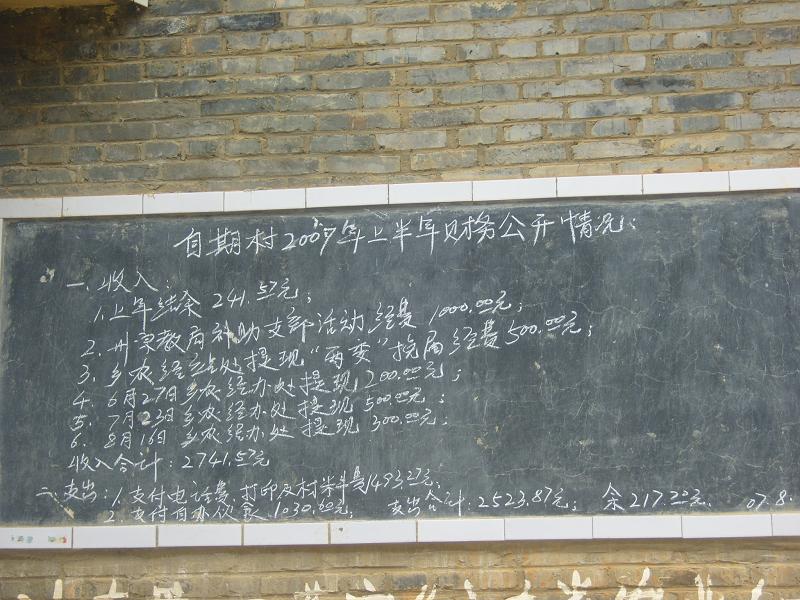 自期村2007年上半年财务公开情况:
一、收入:
1.上年结余 241.57元;
2. 州宗教局补助支部活动经费 1000.00元;
3. 乡农经站处提现“两委”换届经费500.00元;
4. 6月27日乡农经办处提现 200.00元;
5. 7月23日乡农经办处提现 500.00元;
6. 8月16日乡农经办处提现 300.00元;
收入合计:2741.57元
二、支出:1.支付电话费、打印及材料费1493.27元;
2.支付自办伙食 1030.60元; 支出合计:2523.87元; 余217.70元. 07.8.